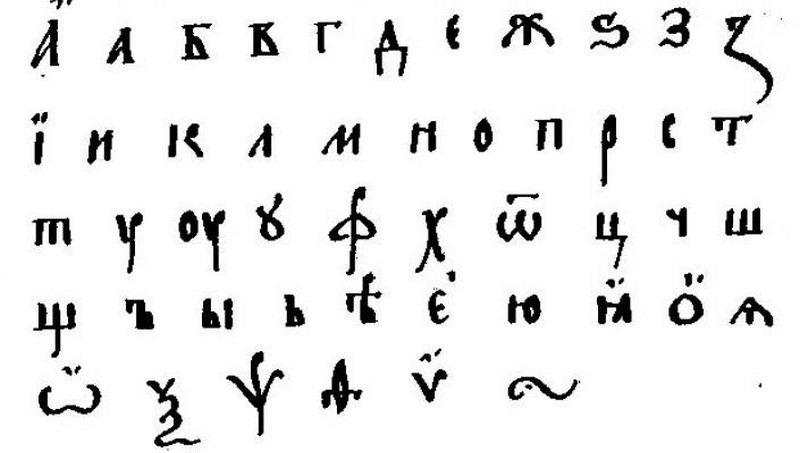 Ӓ А Б В Г Д Є Ж Ѕ З Ꙁ
Ї И К Л М Н О П Р С Т
т Ѱ ОУ Ꙋ Ф Х Ѿ Ц Ч Ш
Щ Ъ Ы Ь Ѣ Є Ю Ꙗ̈ Ӧ Ѧ
Ѡ̈ Ѯ Ѱ Ѳ Ѵ̈